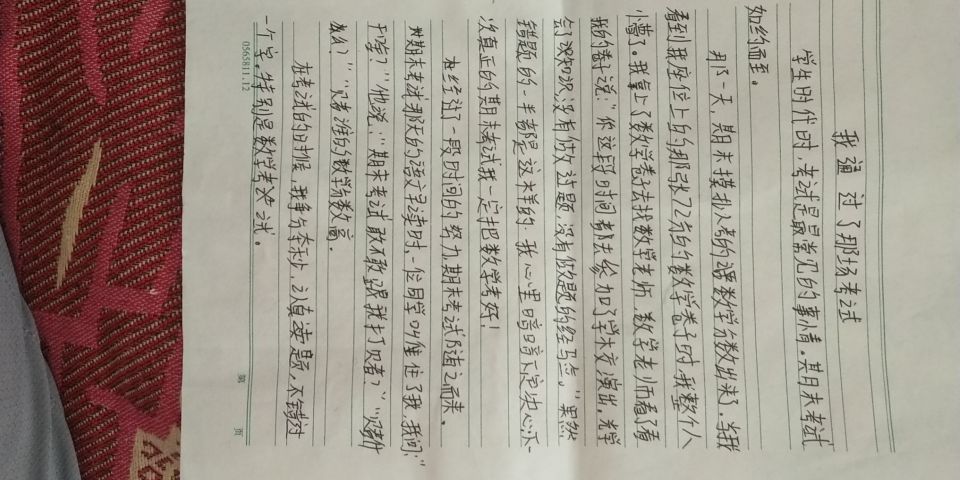 我通过了那场考试
学生时代时，考试是最常见的事情。期末考试
如约而至。
那一天，期末摸扑人考的语数学分数出来了，当我
看到我座位上的那张72分的数学卷子时，我整个人
懵了。我拿上了数学卷子去找数学老师，数学老师看了看
我的卷子说：“你这段时间都去参加了学术交演出，光学
会了没知识，没有做过题，没有做题的经马佥。”果然，
错题的一半都是这样的，我心里暗暗下定决心下
次真正的期末考试我一定把数学考好！
在经过了一段时间的努力，期末考试随之而来。
在期末考试那天的语文早读时，一位同学叫住了我，我问：“
干啥？”他说：“期末考试敢不敢跟我打贝者？”“贝者什
麽？”“贝者谁的数学分数高。
在考试的时候，我争分夺秒，认真读题，不错过
一个字。特别是数学考试。
0565811.12
第 页